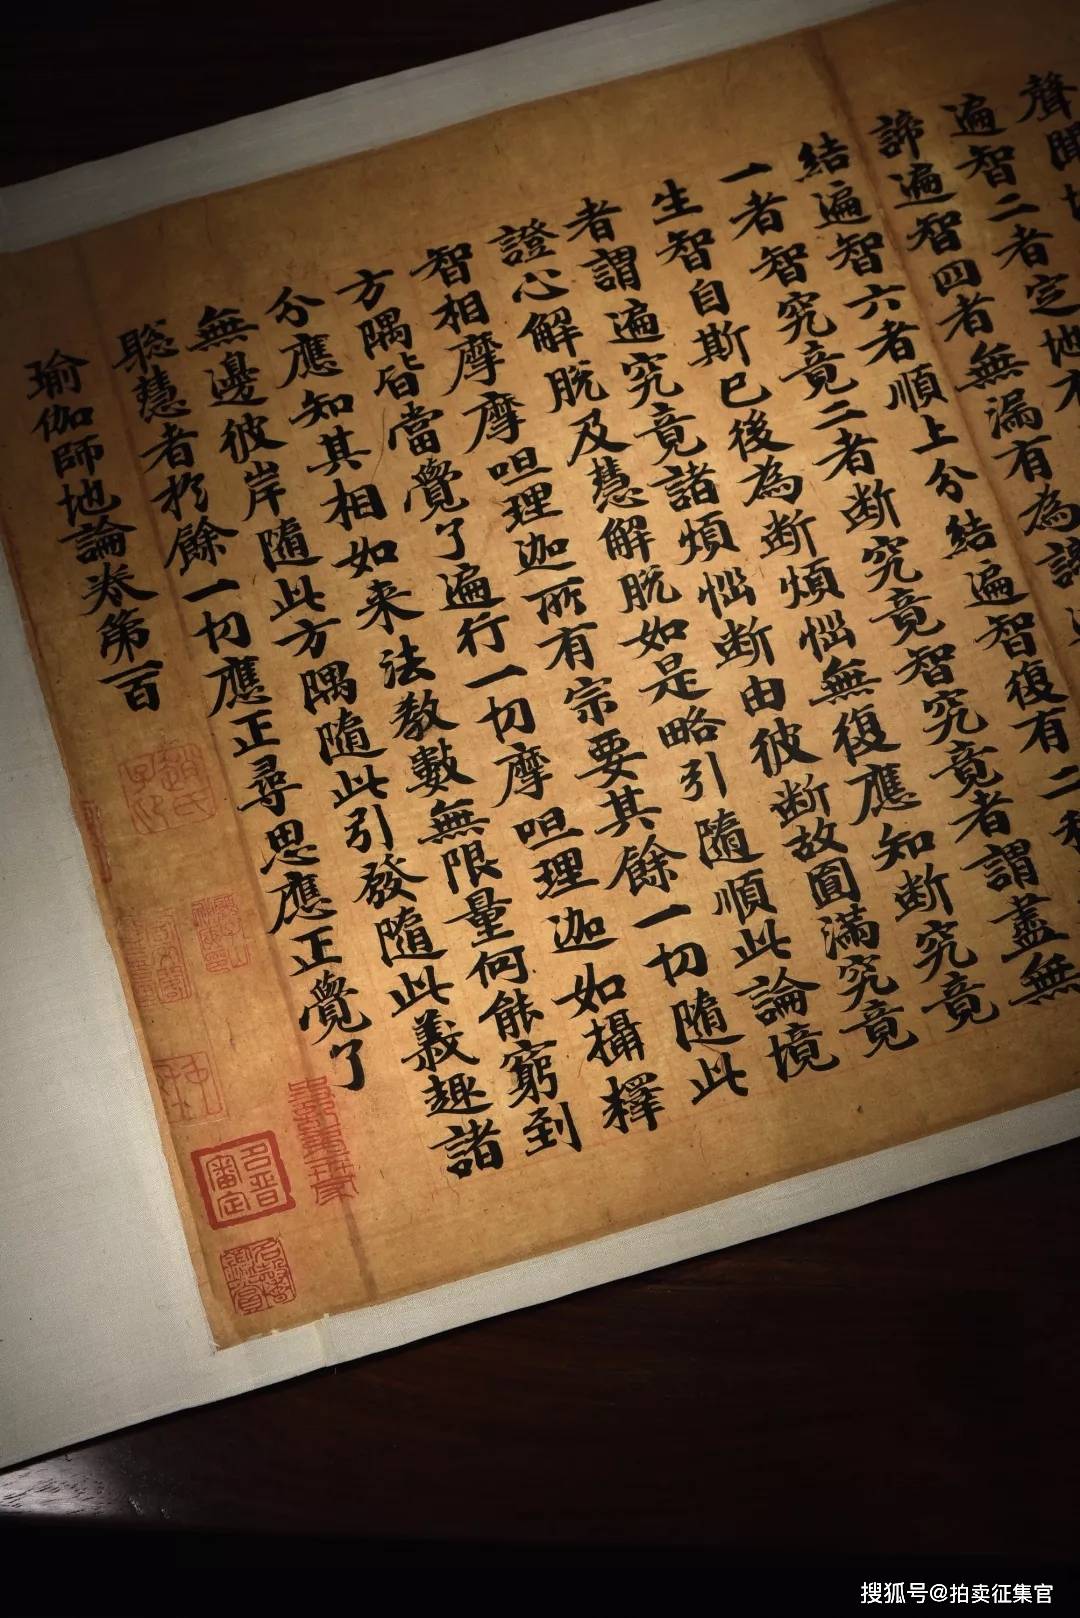 聲聞地
遍智二者定地不
諦遍智四者無漏有為諦
結遍智六者順上分結遍智復有二種
一者智究竟二者断究竟智究竟者謂盡無
生智自斯已後為断煩惱無復應知断究竟
者謂遍究竟諸煩惱断由彼断故圓滿究竟
證心解脫及慧解脫如是略引隨順此論境
智相摩摩呾理迦所有宗要其餘一切隨此
方隅皆當覺了遍行一切摩呾理迦如攝釋
分應知其相如来法教數無限量何能窮到
無邊彼岸隨此方隅隨此引發隨此義趣諸
聡慧者於餘一切應正尋思應正覺了
瑜伽師地論卷第一百
趙氏子昂
搜狐号@拍卖征集官